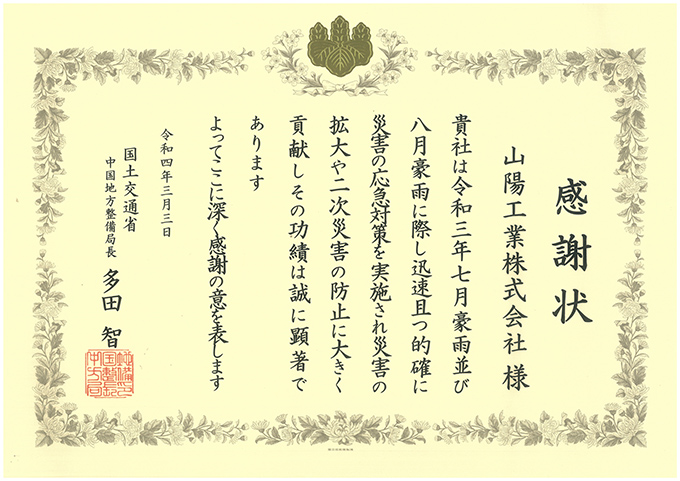 感謝状
山陽工業株式会社 様
貴社は令和三年七月豪雨並び
八月豪雨に際し迅速且つ的確に
災害の応急対策を実施され災害の
拡大や二次災害の防止に大きく
貢献しその功績は誠に顕著で
あります
よってここに深く感謝の意を表します
令和四年三月三日
国土交通省
中国地方整備局長 多田 智